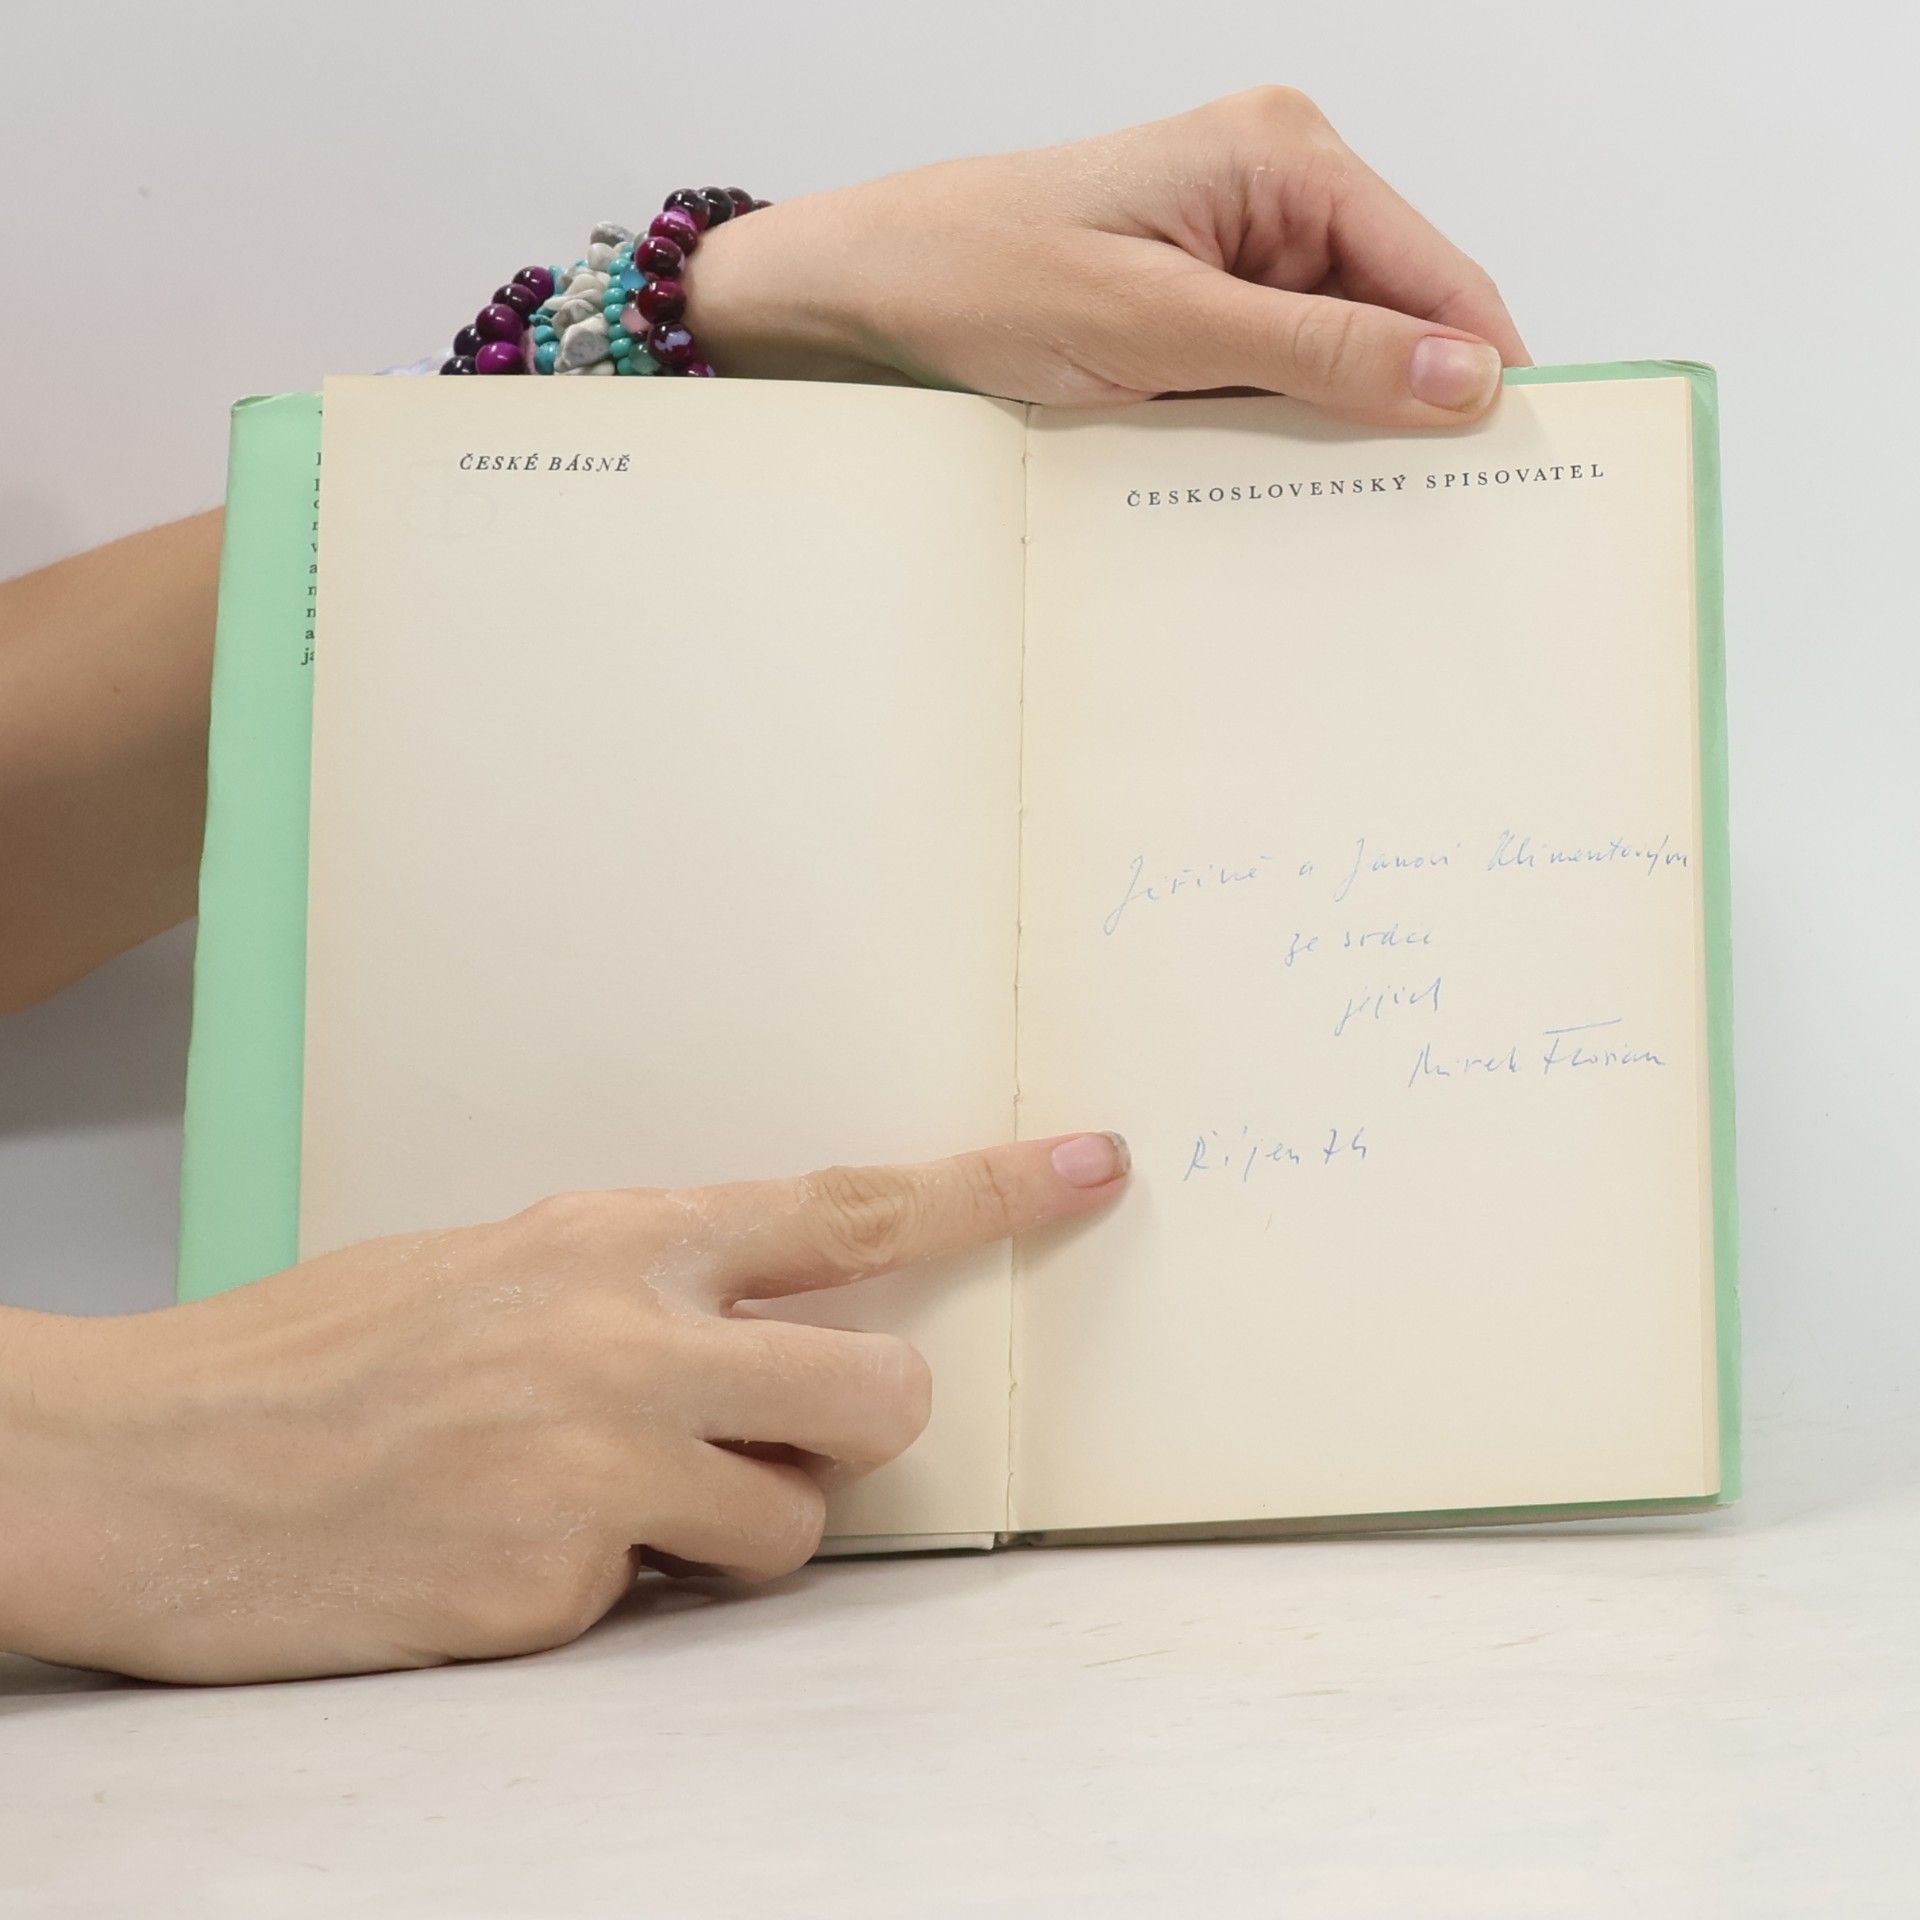 ČESKÉ BÁSNĚ
ČESKOSLOVENSKÝ SPISOVATEL
Jiřině a Janovi Klimentovým
ze srdce
jejich
Mirek Florian
Říjen 74